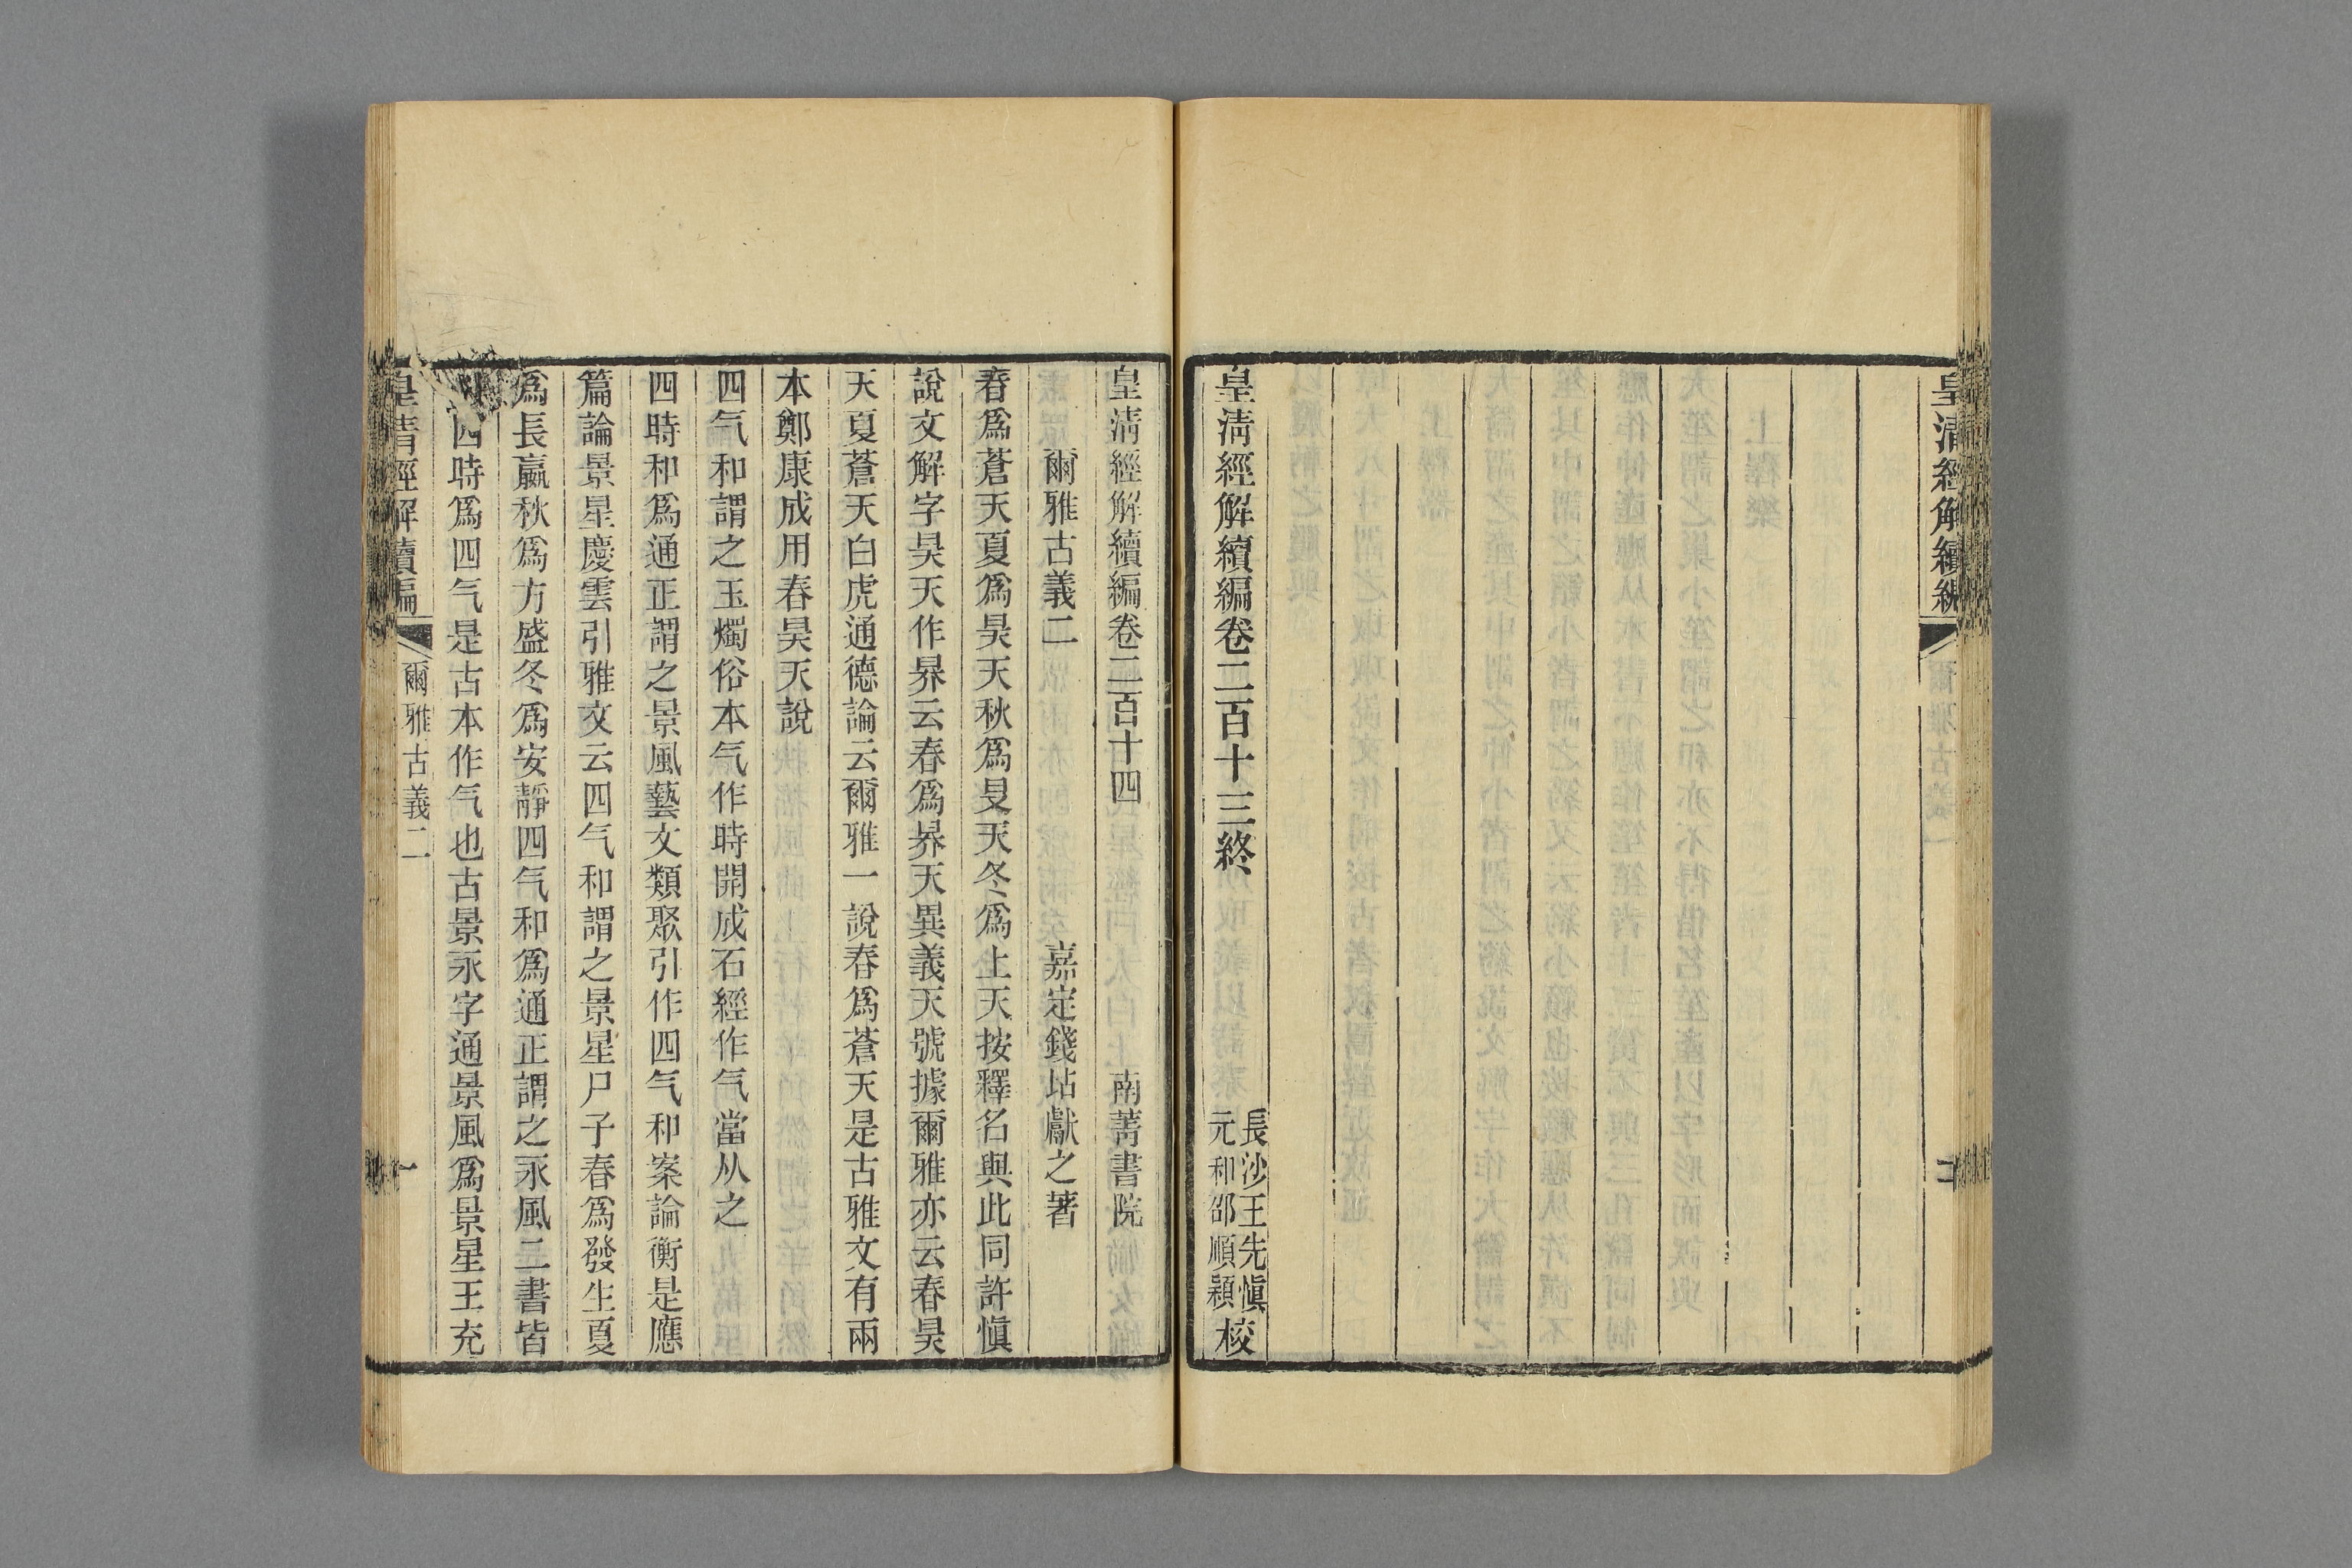 皇淸經解續編
皇淸經解續編卷二百十三終
長沙王先愼
元和邵順穎
校
皇淸經解續編卷二百十四
南菁書院
爾雅古義二
嘉定錢坫獻之著
春爲蒼天夏爲昊天秋爲旻天冬爲上天按釋名與此同許愼
說文解字昊天作昦云春爲昦天異義天號據爾雅亦云春昊
天夏蒼天白虎通德論云爾雅一說春爲蒼天是古雅文有兩
本鄭康成用春昊天說
四气和謂之玉燭俗本气作時開成石經作气當从之
四時和爲通正謂之景風藝文類聚引作四气和案論衡是應
篇論景星慶雲引雅文云四气和謂之景星尸子春爲發生夏
爲長贏秋爲方盛冬爲安靜四气和爲通正謂之永風二書皆
四時爲四气是古本作气也古景永字通景風爲景星王充
皇清經解續編
爾雅古義二
一